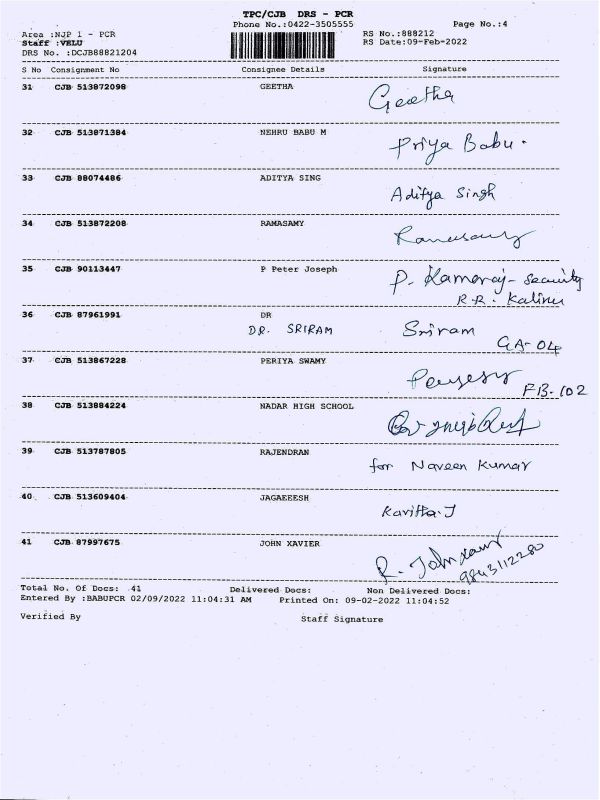 TPC/CJB DRS - PCR
Phone No.:0422-3505555 Page No.:4
Area :NJP 1 - PCR RS No.:888212
Staff :VELU RS Date:09-Feb-2022
DRS No. :DCJB88821204
S No Consignment No Consignee Details Signature
31 CJB 513872098 GEETHA Geetha
32 CJB 513871384 NEHRU BABU M Priya Babu.
33 CJB 88074486 ADITYA SING Aditya Singh
34 CJB 513872208 RAMASAMY Ramasamy
35 CJB 90113447 P Peter Joseph P. Kamaraj - Security
R.R.
36 CJB 87961991 DR
DR. SRIRAM Sriram
GA-04
37 CJB 513867228 PERIYA SWAMY
FB-102
38 CJB 513884224 NADAR HIGH SCHOOL
39 CJB 513787805 RAJENDRAN for Naveen Kumar
40 CJB 513609404 JAGAEEESH Kavitha.J
41 CJB 87997675 JOHN XAVIER R. John Xavier
9843112280
Total No. Of Docs: 41 Delivered Docs: Non Delivered Docs:
Entered By :BABUPCR 02/09/2022 11:04:31 AM Printed On: 09-02-2022 11:04:52
Verified By Staff Signature